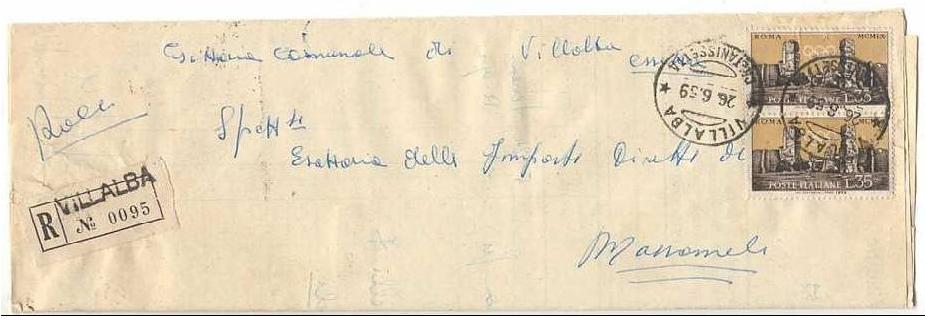 Esattoria Comunale di Villalba
Racc
Spett le
Esattoria delle Imposte Dirette di
Mussomeli
VILLALBA
R № 0095
VILLALBA * CALTANISSETTA *
26.6.59
ROMA MCMLX
L.35
ROMA MCMLX
POSTE ITALIANE L.35